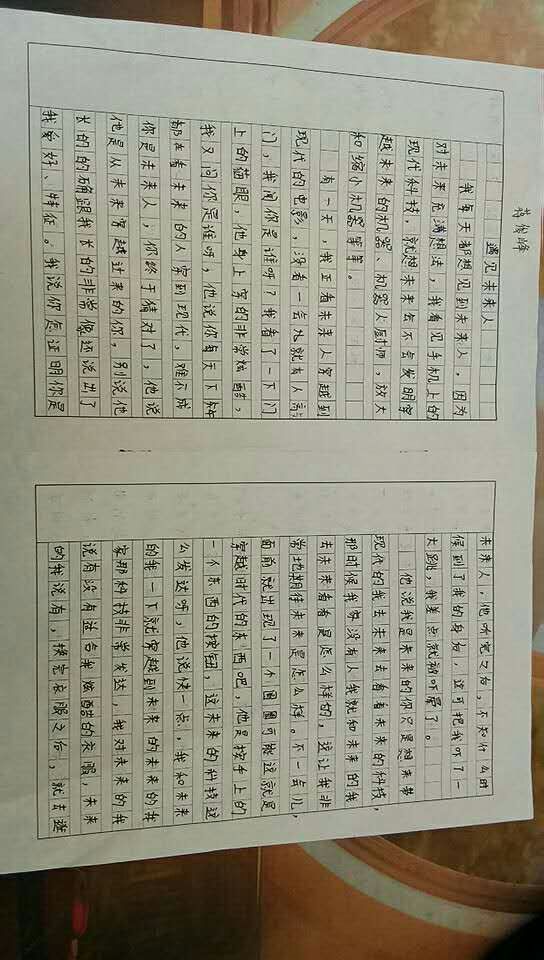 蒋俊峰
遇见未来人
我每天都想见到未来人，因为
对未来充满想法，我看见手机上的
现代科技，就想未来会不会发明穿
越未来的机器、机器人厨师，放大
和缩小机器等等。
有一天，我正看未来人穿越到
现代的电影，没看一会儿就有人敲
门，我问你是谁呀？我看了一下门
上的猫眼，他身上穿的非常炫酷，
我又问你是谁呀，他说你每天下午
都在看未来的人穿到现代，难不成
你是未来人，你终于猜对了，他说
他是从未来穿越过来的你，别说他
长的的确跟我长的非常像还说出了
我爱好、特征。我说你怎证明你是
未来人，他听完之后，不知什么时
候到了我的身后，这可把我吓了一
大跳，我差点就被吓晕了。
他说我是未来的你只是想来带
现代的我去未来去看看未来的科技，
那时候我家没有人我就和未来的我
去未来看看是怎么样的，这让我非
常地期待未来是怎么样。不一会儿，
面前就出现了一个圈圈可能这就是
穿越时代的东西吧，他是按手上的
一个东西的按钮，这未来的科技这
么发达呀，他说快一点，我和未来
的我一下就穿越到未来的未来的我
家那科技非常发达，我对未来的我
说有没有适合我炫酷的衣服，未来
的我说有，换完衣服之后，就去逛